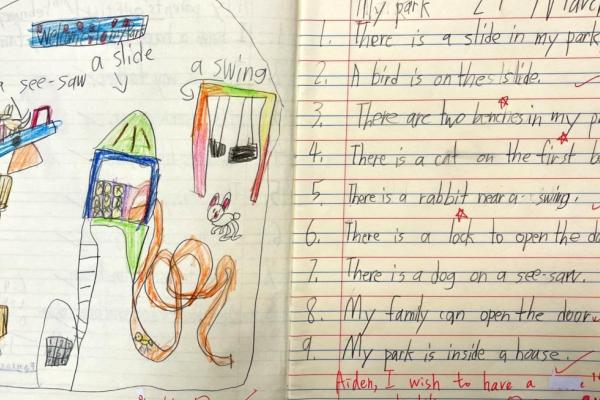 Welcome to my Park
a slide
a see-saw
a swing
My park
1. There is a slide in my park
2. A bird is on the slide.
3. There are two benches in my
4. There is a cat on the first
5. There is a rabbit near a swing.
6. There is a lock to open the
7. There is a dog on a see-saw.
8. My family can open the door.
9. My park is inside a house.
Aiden, I wish to have a